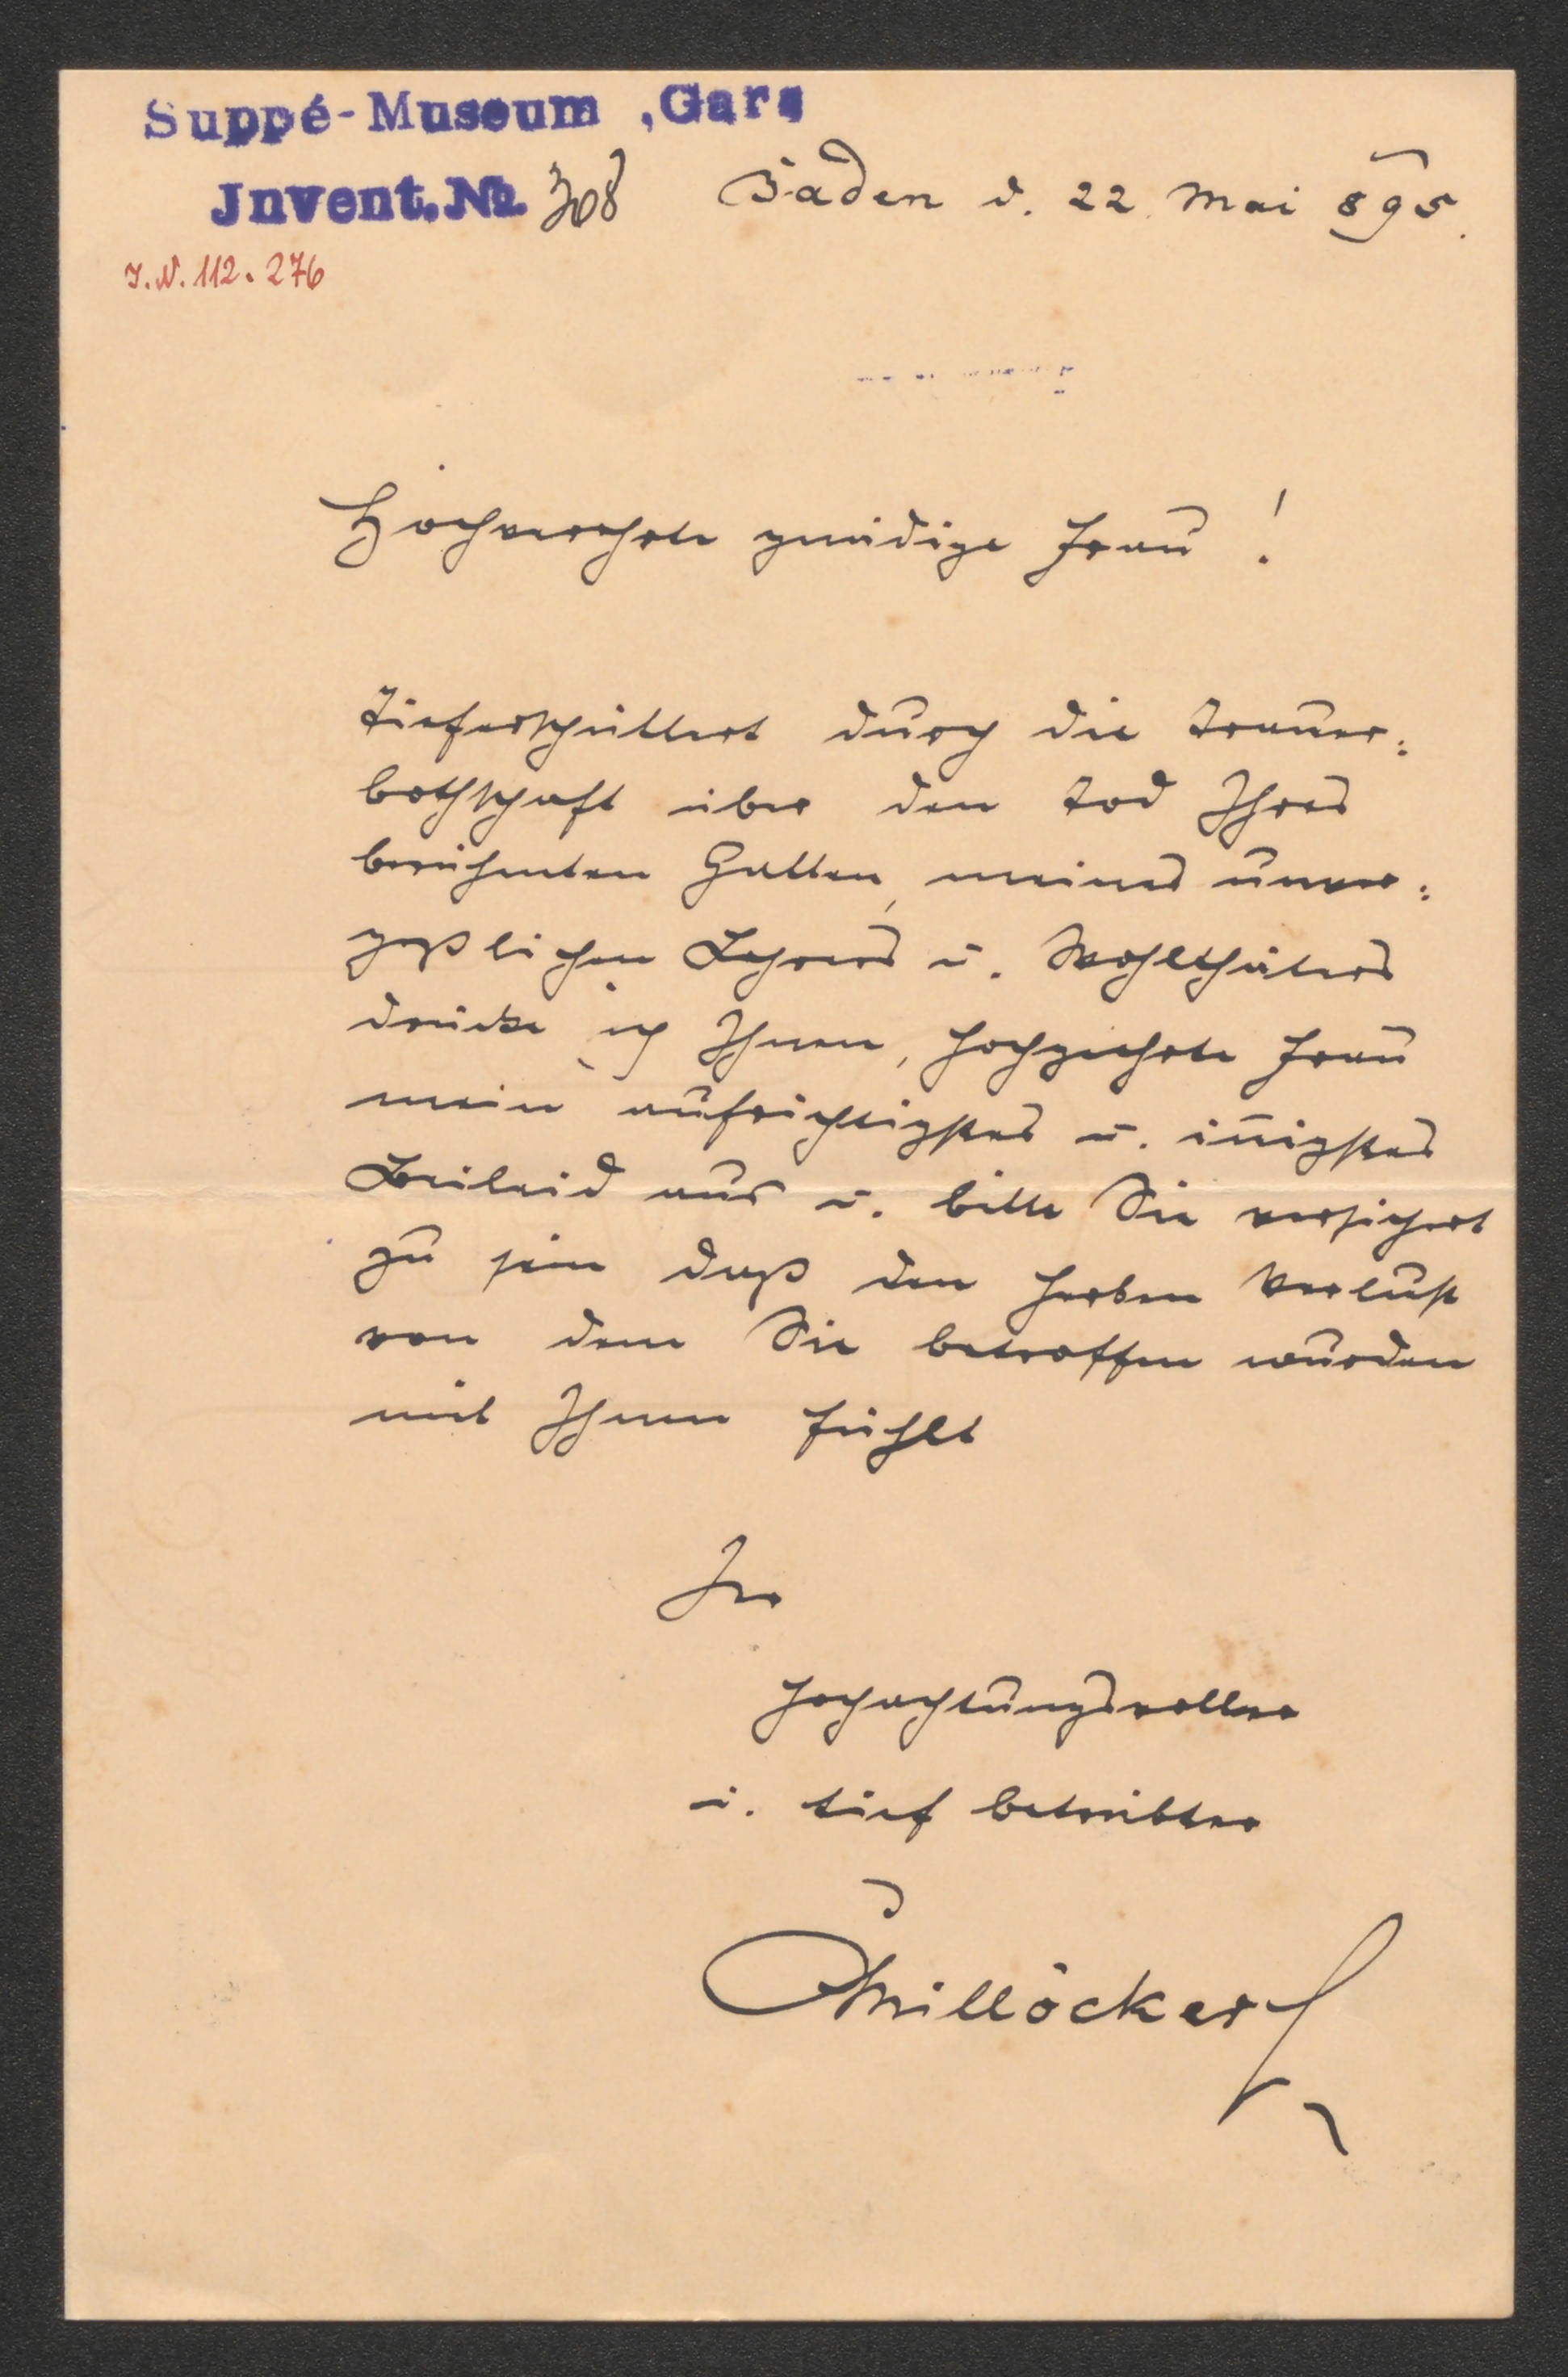 Suppé-Museum, Gars
Jnvent. No. 308
Baden d. 22. Mai 895.
I.N. 112.276
Hochverehrte gnädige Frau!
Tieferschüttert durch die Trauer:
bothschaft über den Tod Ihres
berühmten Gatten, meines unver:
geßlichen Lehrers u. Wohlthäters
drücke ich Ihnen, hochgeehrte Frau
mein aufrichtigstes u. iñigstes
Beileid aus u. bitte Sie versichert
zu sein daß den herben Verlust
von dem Sie betroffen wurden
mit Ihnen fühlt
Ihr
hochachtungsvoller
u. tief betrübter
CMillöcker